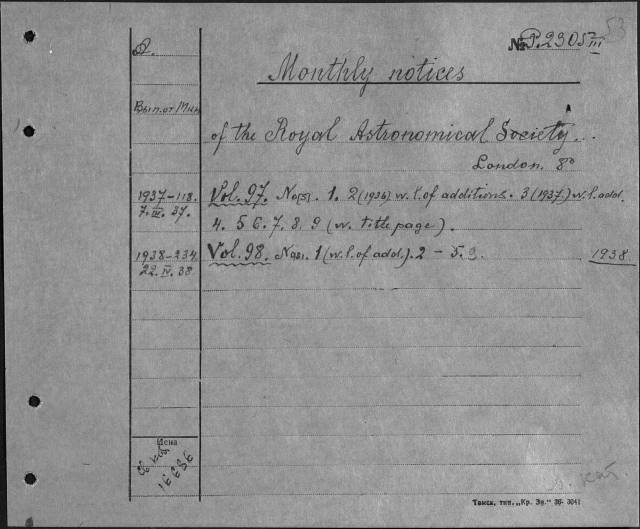 53
А.
№ P.2305 III
Monthly notices
Вып. от Мин
of the Royal Astronomical Society.
London. 8°
1937-118. Vol. 97. No(s). 1. 2 (1936) w. l. of additions. 3 (1937.) w. l. add.
7. III. 37. 4. 5 6. 7, 8, 9 (w. title page).
1938-234. Vol. 98. No(s). 1 (w. l. of add.). 2 - 5. 9. 1938
22. IV. 38.
Цена
16636
кат.
Томск, тип. „Кр. Зн.“ 36- 3041